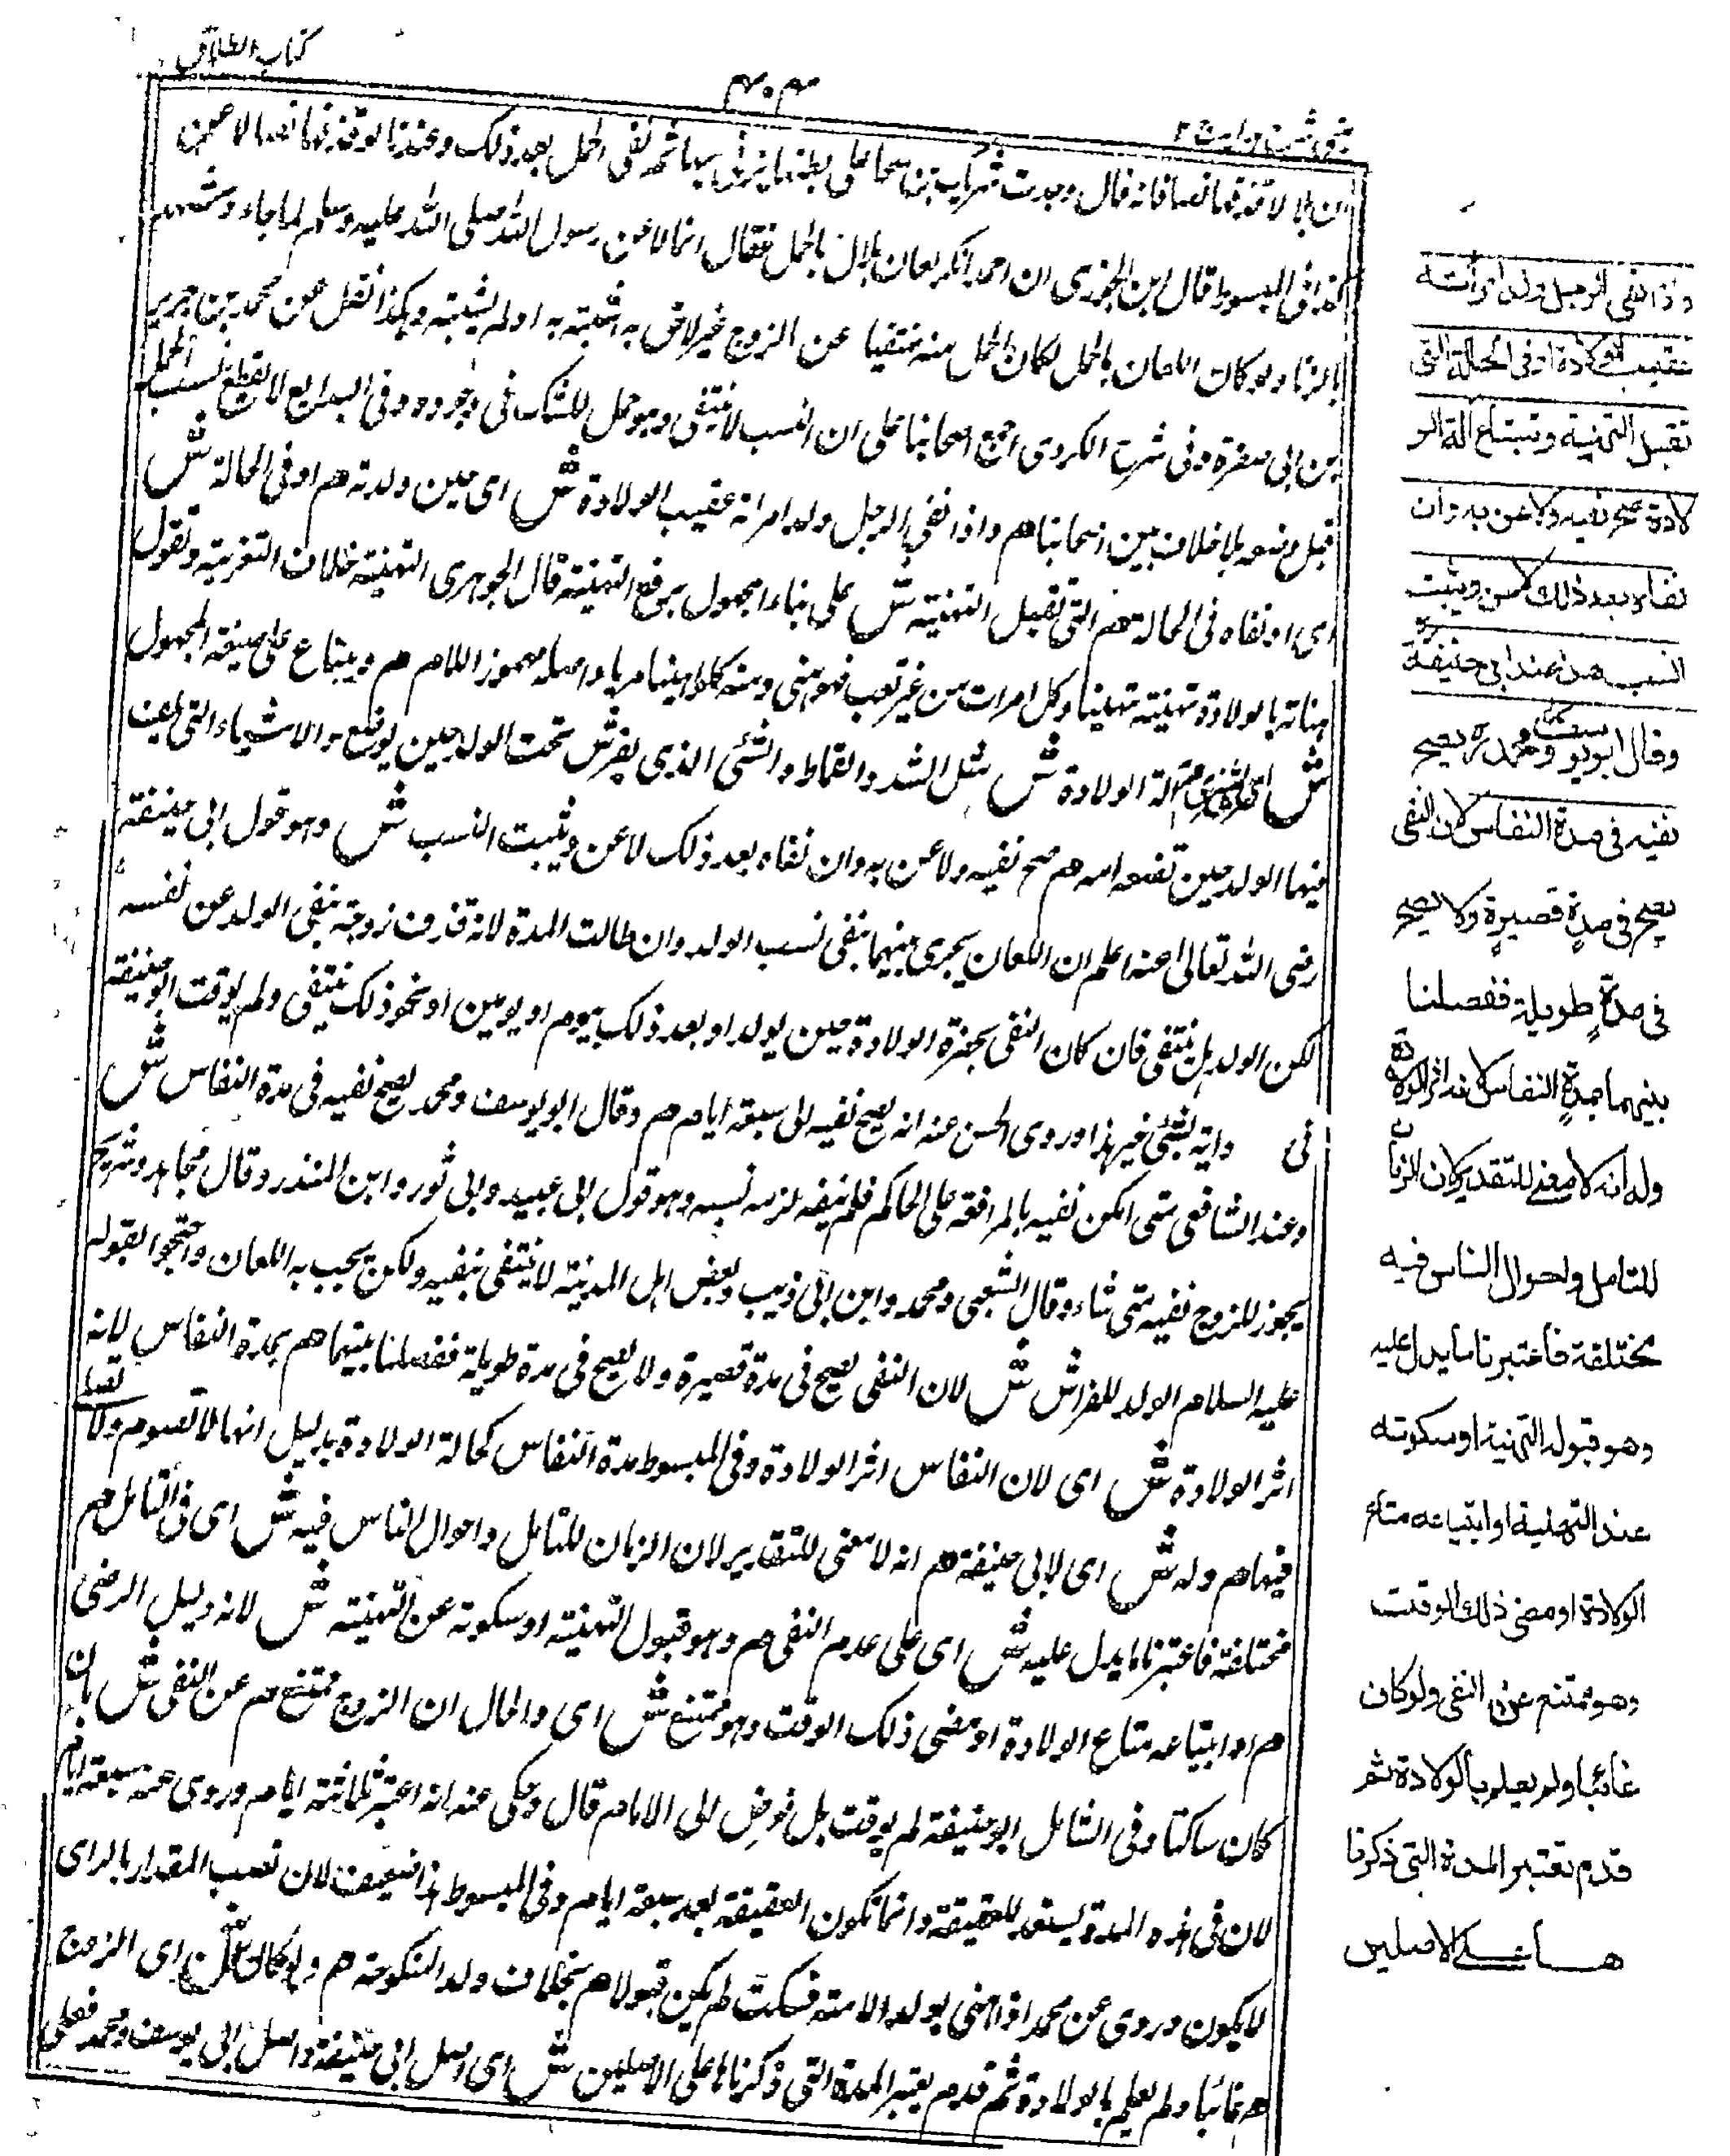 كتاب الطلاق
۴۰۴
ان بلالا قذفها نصا فانه قال وجدت شريك بن سحما على بطنها يزني بها ثم نفى الحمل بعد ذلك وعندنا لو قذفها نصا لاعن
كذا في المبسوط قال ابن الجوزي ان احمد انكر لعان بلال بالحمل فقال انما لاعن رسول الله صلى الله عليه وسلم لما جاء وشهد
بالزنا ولو كان اللعان بالحمل لكان الحمل منه منتفيا عن الزوج غير لاحق به اشبته به او لم يشبته وهكذا نقل عن محمد بن جرير
بن ابي صفرة وفي شرح الكردي اجمع اصحابنا على ان النسب لا ينتفى وهو حمل للشك في وجوده وفي البدايع لا يقطع نسب الحمل
قبل وضعه بلا خلاف بين اصحابنا هم واذا نفى الرجل ولد امراته عقيب الولادة ش اي حين ولدته هم او في الحالة ش
اى او نفاه في الحالة هم التي تقبل التهنية ش على بناء المجهول برفع التهنية قال الجوهري التهنية خلاف التعزية وتقول
هناته بالولادة تهنية تهنيا وكل امرات من غير تعب فهو هني ومنه كلوا هنيئا مريا واصله مهموز اللام هم ويبتاع على صيغة المجهول
ش الة الولادة ش مثل الشد والقماط والشئ الذي يفرش تحت الولد حين يوضع والاشياء التي
فيها الولد حين تضعه امه هم صح نفيه ولاعن به وان نفاه بعد ذلك لاعن ويثبت النسب ش وهو قول ابي حنيفة
رضي الله تعالى عنه اعلم ان اللعان يجرى بينهما بنفى نسب الولد وان طالت المدة لانه قذف زوجته بنفى الولد عن نفسه
لكن الولد هل ينتفى فان كان النفى بحضرة الولادة حين يولد او بعد ذلك بيوم او يومين او نحو ذلك ينتفى ولم يوقت ابو حنيفة
في واية لشئ غير هذا وروى الحسن عنه انه يصح نفيه الى سبعة ايام هم وقال ابو يوسف ومحمد يصح نفيه في مدة النفاس ش
وعند الشافعي متى امكن نفيه بالمرافقة على الحاكم فلم ينفه لزمه نسبه وهو قول ابي عبيد وابي ثور وابن المنذر وقال مجاهد وشريح
يجوز للزوج نفيه متى شاء وقال الشعبي ومحمد وابن ابي ذيب وبعض اهل المدينة لا ينتفى بنفيه ولكن يجب به اللعان واحتجوا لقوله
عليه السلام الولد للفراش ش لان النفى يصح في مدة قصيرة ولا يصح في مدة طويلة ففصلنا بينهما هم بمدة النفاس لانه
اثر الولادة ش اى لان النفاس اثر الولادة وفي المبسوط مدة النفاس كحالة الولادة بدليل انها لا تصوم ولا تصلي
فيها هم وله ش اى لابي حنيفة هم انه لا معنى للتقدير لان الزمان للتامل واحوال الناس فيه ش اى في التامل هم
مختلفة فاعتبرنا ما يدل عليه ش اى على عدم النفى هم وهو قبول التهنية او سكوته عن التهنية ش لانه دليل الرضى
هم او ابتياعه متاع الولادة او مضى ذلك الوقت وهو ممتنع ش اى والحال ان الزوج ممتنع هم عن النفى ش بان
كان ساكتا وفي الشامل ابو حنيفة لم يوقت بل فوض الى الامام قال وحكى عنه انه اعتبر ثلاثة ايام وروى عنه سبعة ايام
لان في هذه المدة يستعد للعقيقة وانما تكون العقيقة بعد سبعة ايام وفي المبسوط هذا ضعيف لان نصب المقدار بالراى
لا يكون وروى عن محمد اذا هنى بولد الامة فسكت لم يكن قبولا هم بخلاف ولد المنكوحة هم ولو كان ش اى الزوج
هم غائبا ولم يعلم بالولادة ثم قدم يعتبر المدة التي ذكرناها على الاصلين ش اى اصل ابي حنيفة واصل ابي يوسف ومحمد فعلى
واذا نفى الرجل ولد امرأته
عقيب الولادة او في الحالة التي
تقبل التهنية وتبتاع الة الو
لادة صح نفيه ولاعن به وان
نفاه بعد ذلك لاعن ويثبت
النسب هذا عند ابي حنيفة
وقال ابو يوسف ومحمد يصح
نفيه في مدة النفاس لان النفى
يصح في مدةٍ قصيرةٍ ولا يصح
في مدةٍ طويلة ففصلنا
بينهما بمدةِ النفاس لانه اثر الولادة
وله انه لا معنى للتقدير لان الزمان
للتامل واحوال الناس فيه
مختلفة فاعتبرنا ما يدل عليه
وهو قبوله التهنية او سكوته
عند التهنية او ابتياعه متاع
الولادة او مضى ذلك الوقت
وهو ممتنع عن النفى ولو كان
غائبا ولم يعلم بالولادة ثم
قدم تعتبر المدة التي ذكرنا
ها على الاصلين